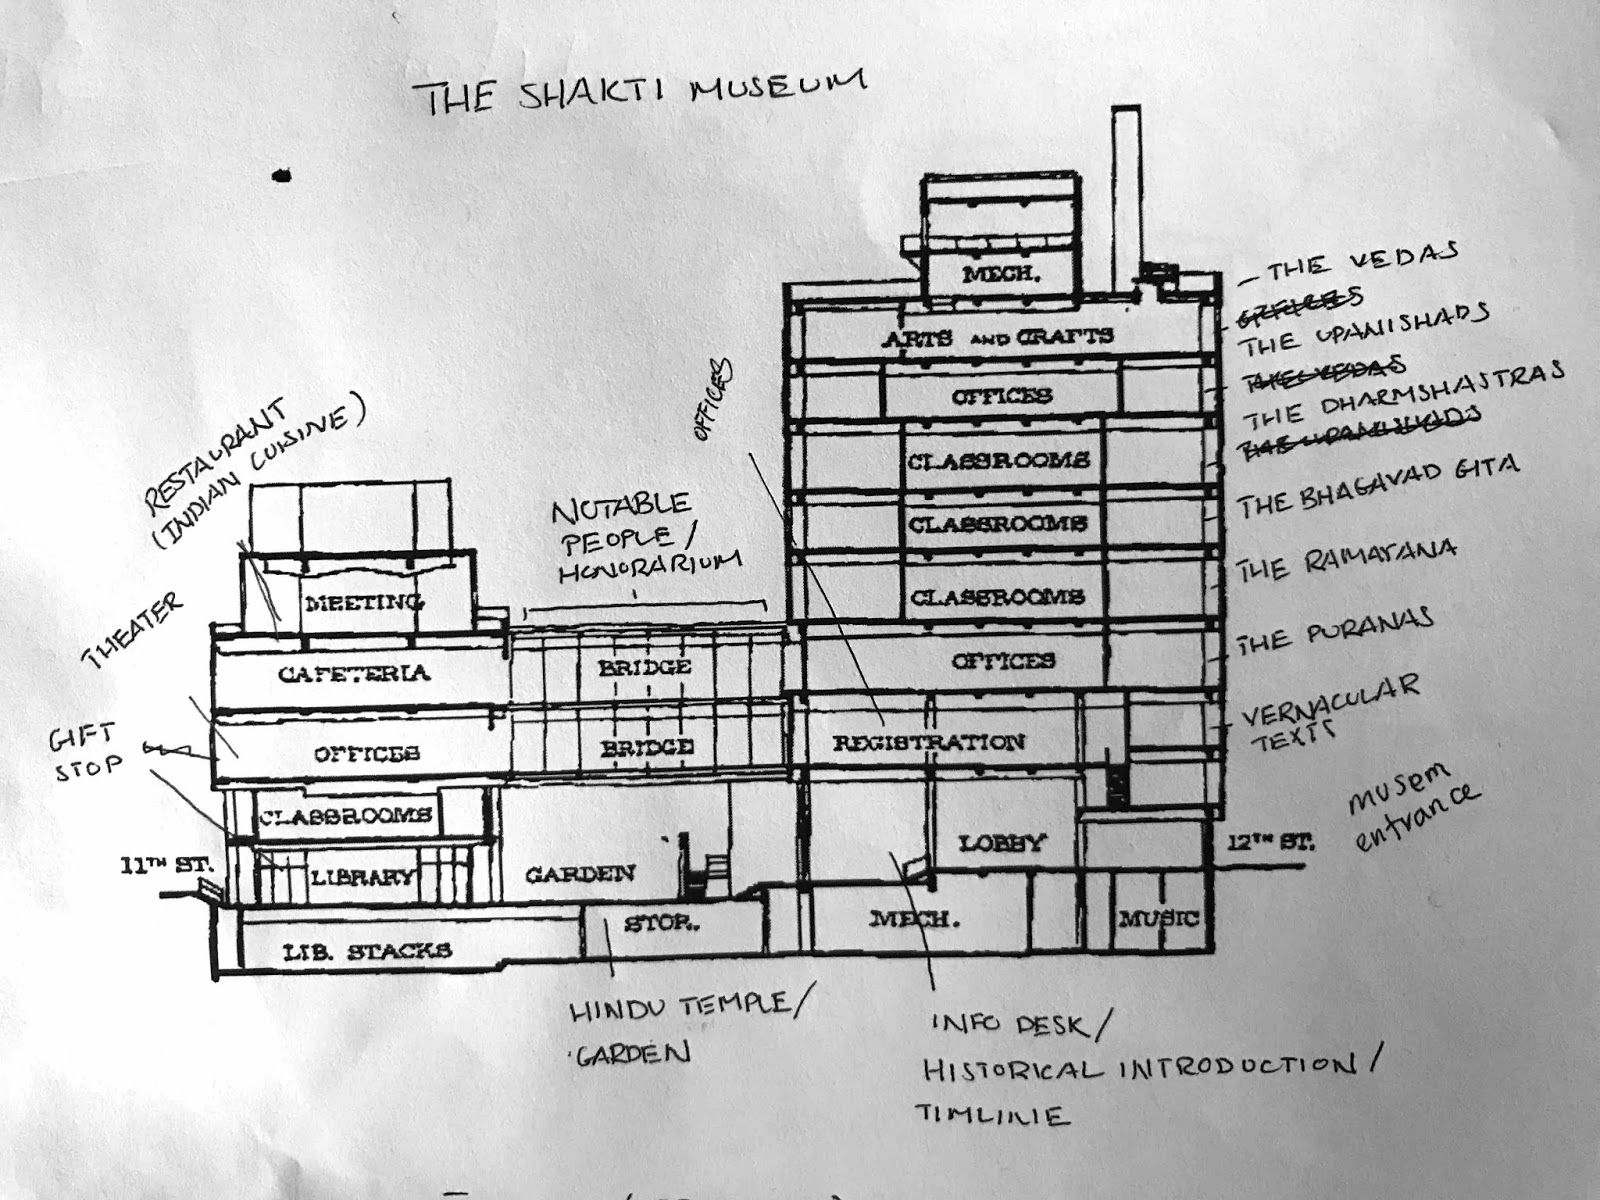 THE SHAKTI MUSEUM
MECH.
ARTS AND CRAFTS
OFFICES
CLASSROOMS
CLASSROOMS
CLASSROOMS
OFFICES
REGISTRATION
LOBBY
MECH.
MUSIC
12TH ST.
MEETING
CAFETERIA
OFFICES
CLASSROOMS
LIBRARY
LIB. STACKS
11TH ST.
BRIDGE
BRIDGE
GARDEN
STOR.
RESTAURANT
(INDIAN CUISINE)
THEATER
GIFT
STOP
NOTABLE
PEOPLE/
HONORARIUM
OFFICES
- THE VEDAS
OFFICES
THE UPANISHADS
THE VEDAS
THE DHARMSHASTRAS
THE UPANISHADS
THE BHAGAVAD GITA
THE RAMAYANA
THE PURANAS
VERNACULAR
TEXTS
musem
entrance
HINDU TEMPLE/
GARDEN
INFO DESK/
HISTORICAL INTRODUCTION/
TIMLINIE